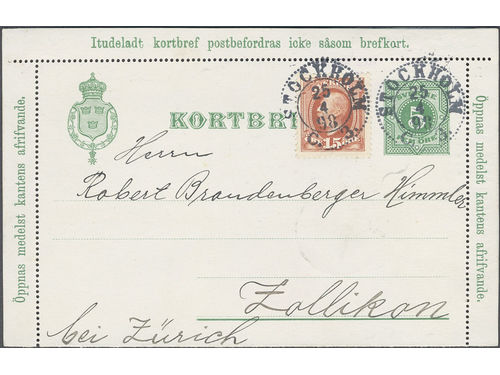 Itudeladt kortbref postbefordras icke såsom brefkort.
STOCKHOLM
25
4
99
C. 3.
STOCKHOLM
25
4
99
C. 3.
KORTBR
15 ÖRE
Herrn
Robert Brandenberger Himmler
Zollikon
bei Zürich
Öppnas medelst kantens afrifvande.
Öppnas medelst kantens afrifvande.